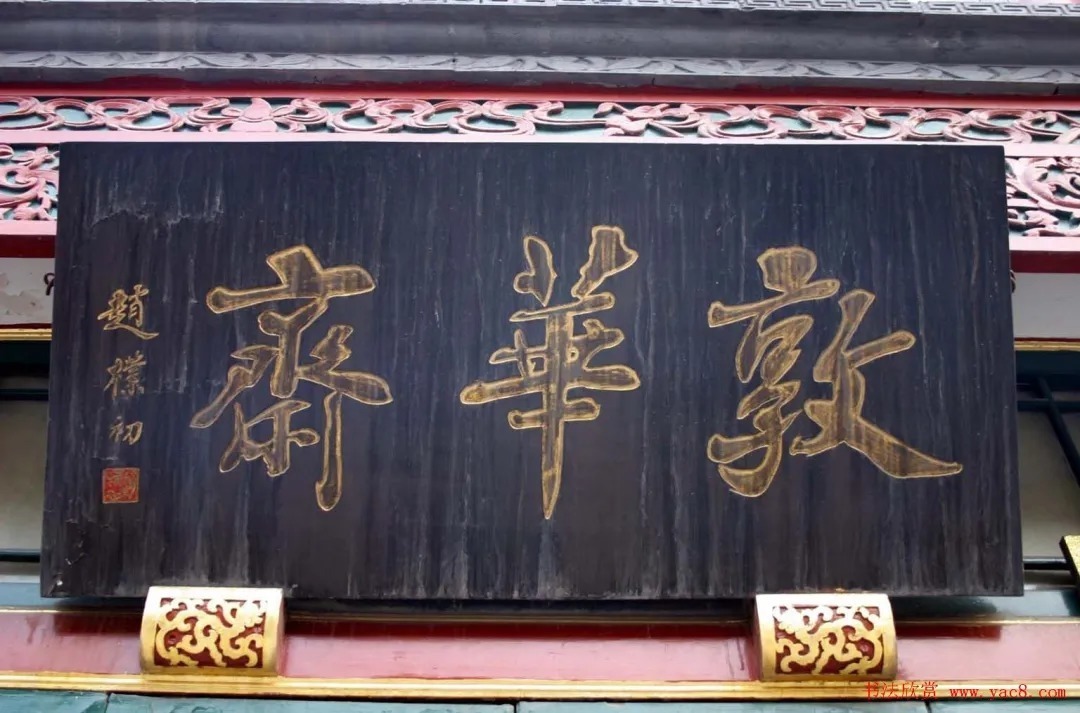 敦華齋
趙樸初
书法欣赏 www.yac8.com